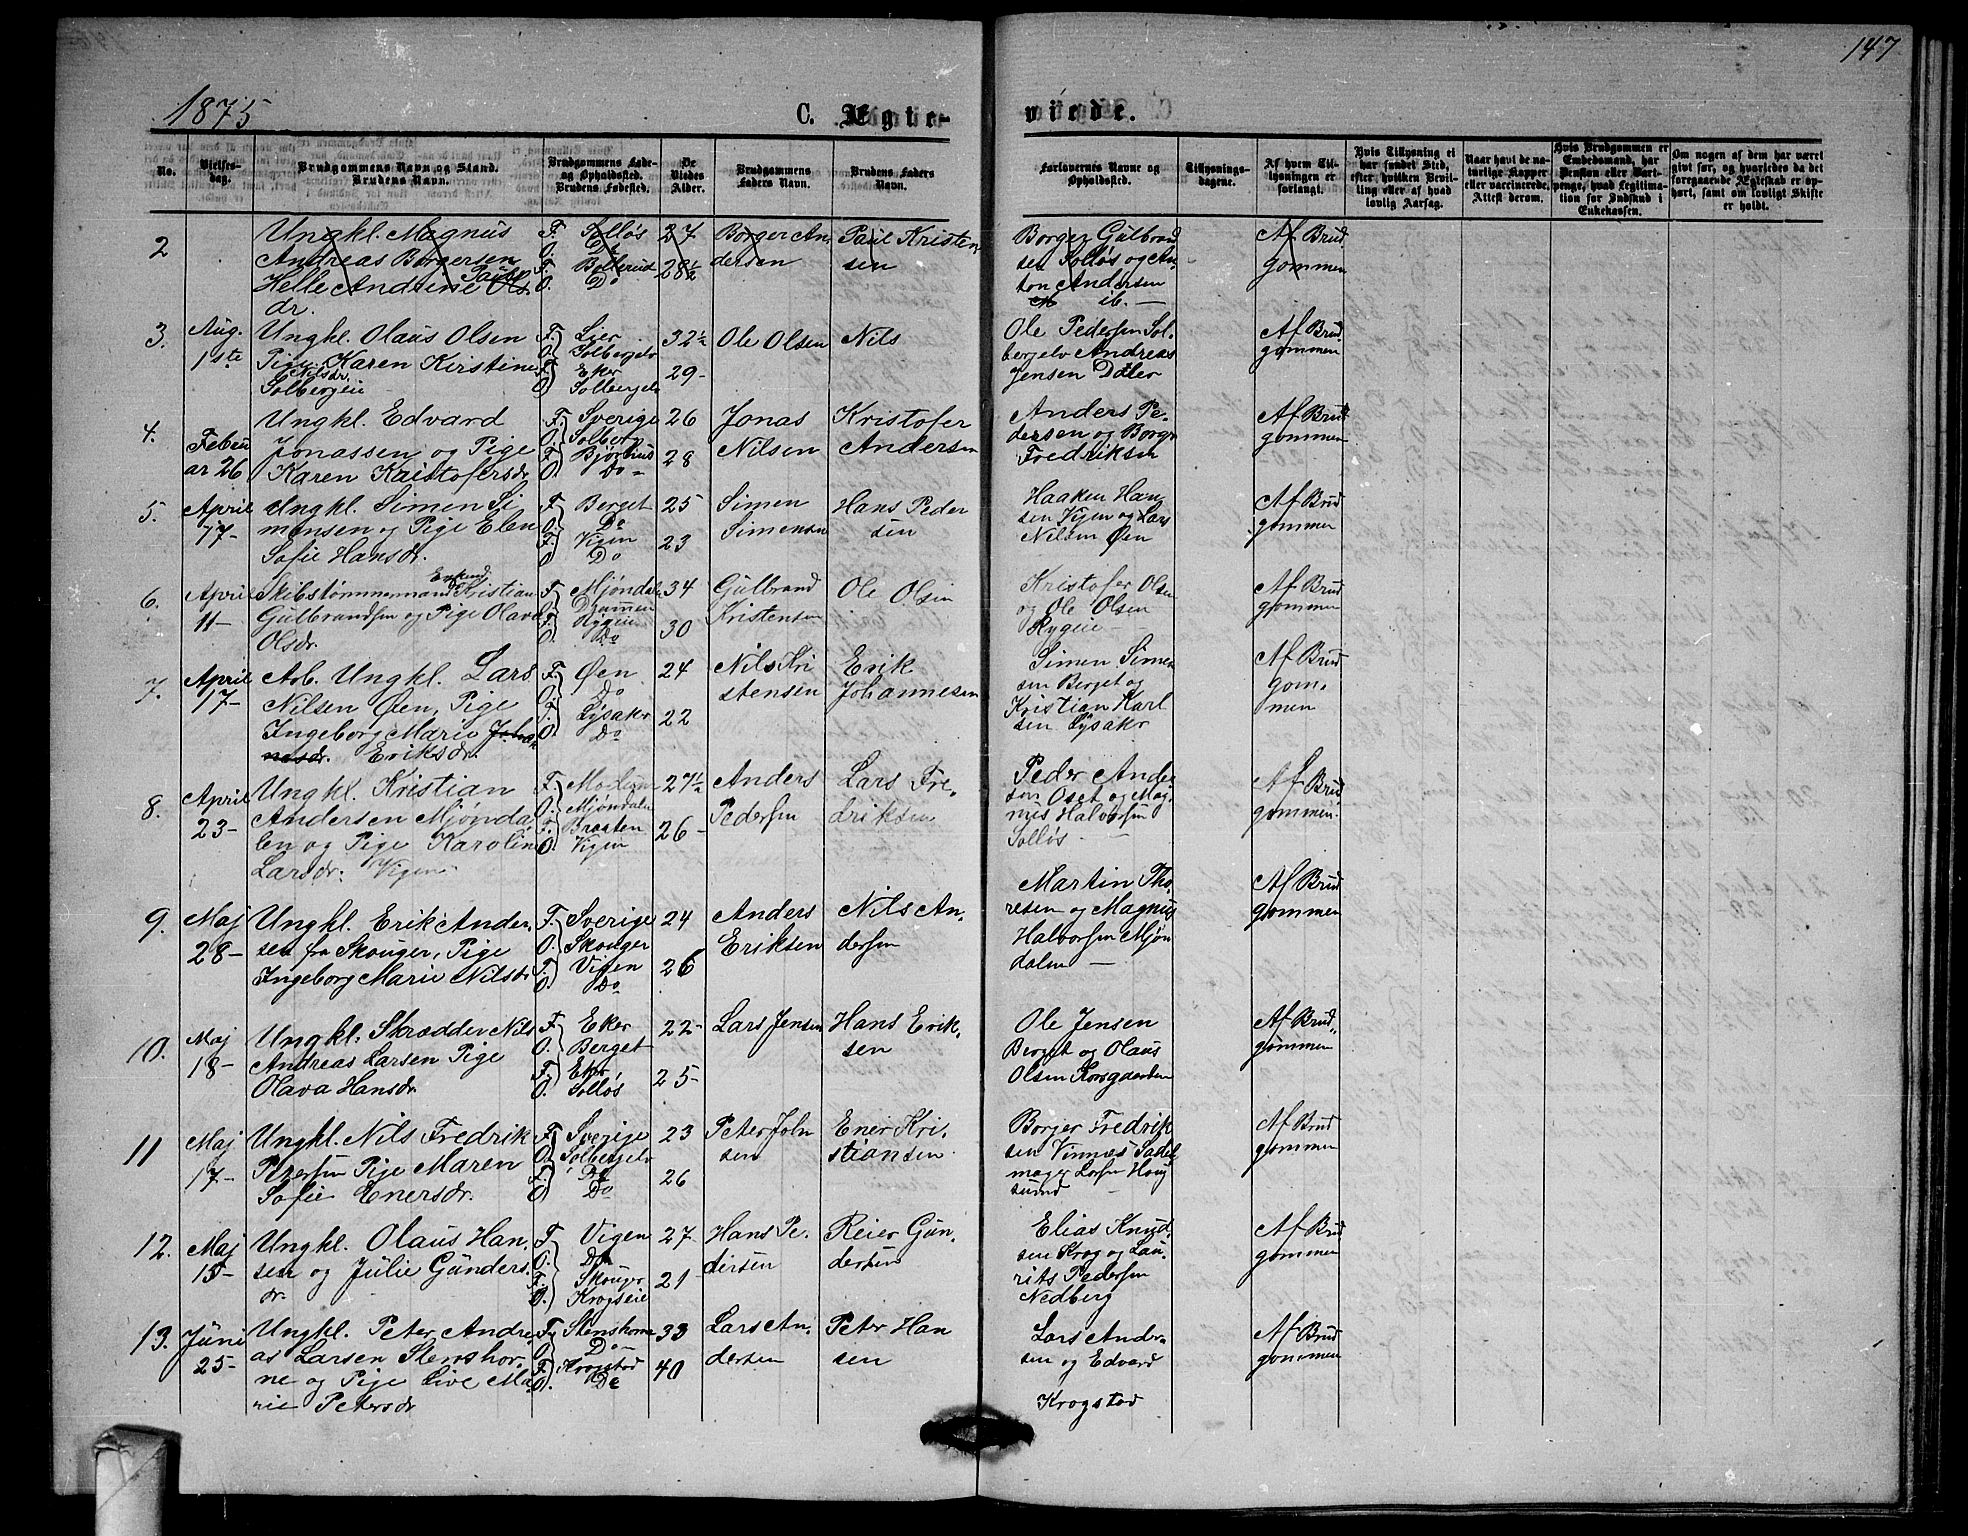 147
1875
C. Ægte-
viede.
No.
Vielses-
dag.
Brudgommens Navn og Stand.
Brudens Navn.
Brudgommens Føde-
og Opholdssted.
Brudens Fødested.
De
Viedes
Alder.
Brudgommens
Faders Navn.
Brudens Faders
Navn.
Forlovernes Navne og
Opholdssted.
Tillysnings-
dagene.
Af hvem Til-
lysningen er
forlangt.
Hvis Tillysning ei
har fundet Sted,
efter hvilken Bevil-
ling eller af hvad
lovlig Aarsag.
Naar havt de na-
turlige Kopper
eller vaccinerede,
Attest derom.
Hvis Brudgommen er
Embedsmand, har
Pension eller Vart-
penge, hvad Legitima-
tion for Indskud i
Enkekassen.
Om nogen af dem har været
givt før, og hvorledes da det
foregaaende Ægteskab er op-
hørt, samt om lovligt Skifte
er holdt.
2
Ungkl. Magnus
Andreas Borgersen
Helle Andrine Ols
Pauls
dr.
F. Solløs
O. Do
F. Bollerud
O. Do
27
28½
Borger An
dersen
Paul Kristen
sen
Borger Gulbrand
sen Solløs og An-
ton Andersen
ib. —
Af Brud
gommen
3.
Aug.
1ste
Ungkl. Olaus Olsen
Pige Karen Kirstine
Nilsdr.
Solbergeie
F. Lier
O. Solbergelv
F. Eker
O. Solbergelv
32½
29-
Ole Olsen
Nils
Ole Pedersen Sol-
bergelv Andreas
Jensen Døler
Af Brud
gommen
4.
Febru
ar 26
Ungkl. Edvard
Jonassen og Pige
Karen Kristofersdr
F. Sverige
O. Solberg
F. Bjørhus
O. Do -
26
28
Jonas
Nilsen
Kristofer
Andersen
Anders Pe-
dersen og Borger
Fredriksen
Af Brud
gommen
5.
April
17-
Ungkl. Simen Si
mensen og Pige Elen
Sofie Hansdr.
F. Berget
O. Do
F. Vigen
O. Do
25
23
Simen
Simensen
Hans Peder
sen
Haaken Han
sen Vigen og Lars
Nilsen Øen
Af Brud
gommen
6.
April
11-
Skibstømmermand Kristian
Gulbrandsen og Pige Olava
Olsdr.
F. Mjøndal
O. Drammen
F. Hygeie
O. Do
34
30
Gulbrand
Kristensen
Ole Olsen
Kristofer Olsen
og Ole Olsen
Hygeie —
Af Brud
gommen
7.
April
17-
Arb. Ungkl. Lars
Nilsen Øen, Pige
Ingeborg Marie Johan
nesdr. Eriksdr.
F. Øen
O. Do
F. Lysakr
O. Do
24
22
Nils Kri
stensen
Erik
Johannesen
Simen Simen
sen Berget og
Kristian Karl
sen Lysakr
Af Brud
gom-
men
8.
April
23-
Ungkl. Kristian
Andersen Mjønda
len og Pige Karoline
Larsdr. Vigen
F. Modum
O. Mjøndalen
F. Braaten
O. Vigen
27½
26-
Anders
Pedersen
Lars Fre-
driksen
Peder Ander
sen Oset og Mag
nus Halvorsen
Solløs —
Af Brud
gommen
9.
Maj
28-
Ungkl. Erik Ander-
sen fra Skouger, Pige
Ingeborg Marie Nilsdr
F. Sverige
O. Skouger
F. Vigen
O. Do
24
26
Anders
Eriksen
Nils An-
dersen
Martin Tho-
resen og Magnus
Halvorsen Mjøn
dalen —
Af Brud
gommen
10.
Maj
18-
Ungkl. Skrædder Nils
Andreas Larsen Pige
Olava Hansdr
F. Eker
O. Berget
F. Eker
O. Solløs
22-
25-
Lars Jensen
Hans Erik-
sen
Ole Jensen
Berget og Olaus
Olsen
Af Brud-
gommen
11
Maj
17-
Ungkl. Nils Fredrik
Petersen Pige Maren
Sofie Enersdr.
F. Sverige
O. Solbergelv
F. Do
O. Do
23
26
Peter John
sen
Ener Kri-
stiansen
Borger Fredrik
sen Vinnæs Sadel
mager Larsen Houg
sund
Af Brud
gommen
12.
Maj
15-
Ungkl. Olaus Han-
sen og Julie Gunders-
dr.
F. Vigen
O. Do
F. Skouger
O. Krogseie
27
21
Hans Pe-
dersen
Reier Gun-
dersen
Elias Knud-
sen Krog og Lau-
rits Pedersen
Nedberg
Af Brud
gommen
13.
Juni
25-
Ungkl. Peter Andre-
as Larsen Stenshor-
ne og Pige Live Ma
rie Petersdr
F. Stenshorne
O. Do-
F. Krogstad
O. Do
33
40
Lars An-
dersen
Peter Han
sen
Lars Ander-
sen og Edvard
Krogstad
Af Brud
gommen